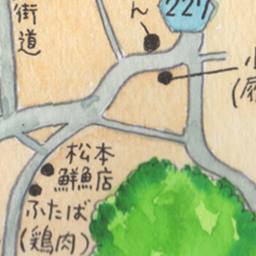 街道
ん
227
小
松本
鮮魚店
ふたば
(鶏肉)